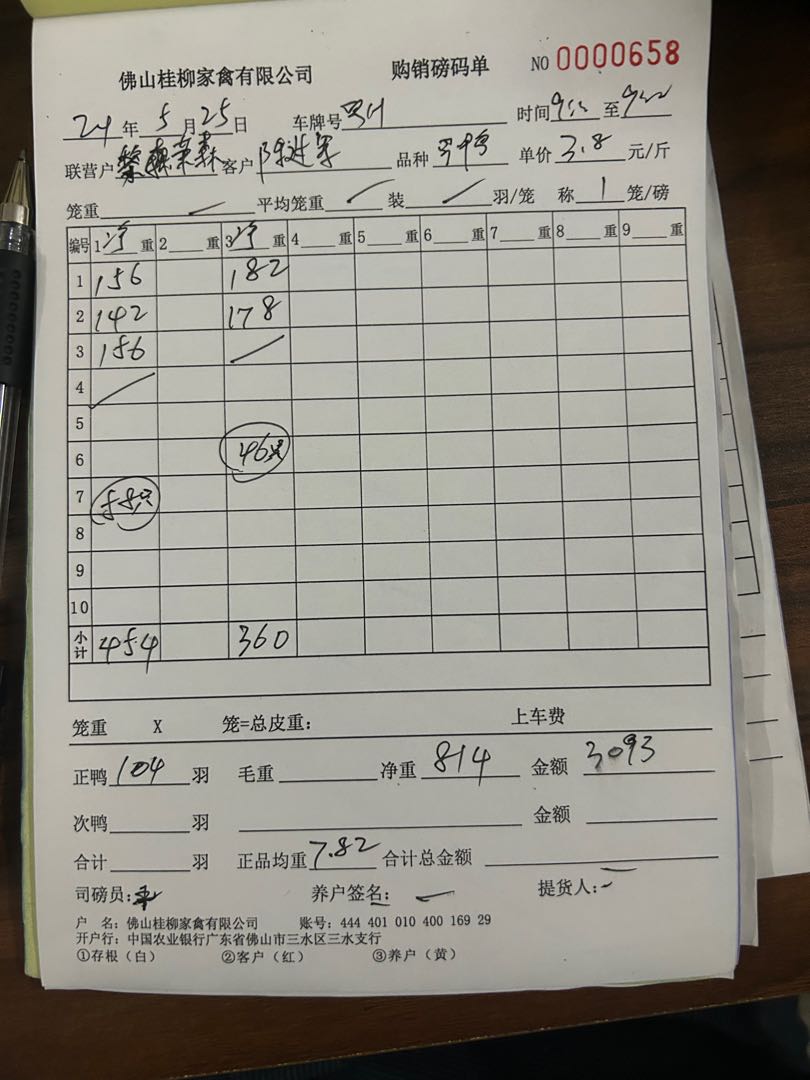 佛山桂柳家禽有限公司 购销磅码单 NO 0000658
24 年 5 月 25 日 车牌号 时间 至
联营户 客户 品种 单价 3.8 元/斤
笼重 平均笼重 装 羽/笼 称 1 笼/磅
编号 1 净 重 2 重 3 净 重 4 重 5 重 6 重 7 重 8 重 9 重
1 156 182
2 142 178
3 156
4
5
6 46只
7 58只
8
9
10
小计 454 360
笼重 X 笼=总皮重: 上车费
正鸭 104 羽 毛重 净重 814 金额 3093
次鸭 羽 金额
合计 羽 正品均重 7.82 合计总金额
司磅员: 养户签名: 提货人:
户 名: 佛山桂柳家禽有限公司 账号: 444 401 010 400 169 29
开户行: 中国农业银行广东省佛山市三水区三水支行
①存根（白） ②客户（红） ③养户（黄）